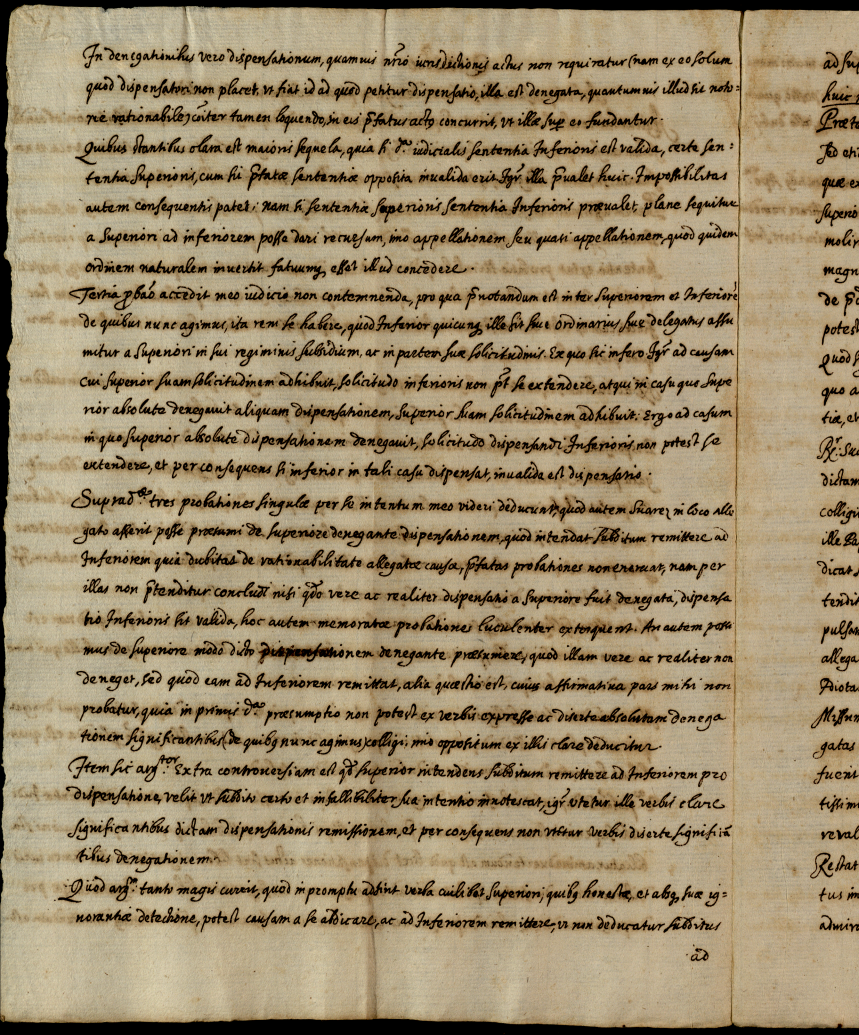 In denegationibus vero dispensationum, quamuis nr̃io iurisdictionis actus non requiratur (nam ex eo solum
quod dispensatori non placet, vt fiat id ad quod petitur dispensatio, illa est denegata, quantumuis illud sit noto-
rie rationabile) cõiter tamen loquendo, in eis p̃fatus actus concurrit, vt illæ sup eo fundantur.
Quibus stantibus clara est maioris sequela, quia si dta iudicialis sententia Inferioris est valida, certe sen=
tentia Superioris, cum sit p̃fatæ sententiæ opposita invalida erit. Igr̃ illa p̃ualet huic. Impossibilitas
autem consequentis patet: nam si sententiæ superioris sententia Inferioris præualet, plane sequitur
a Superiori ad inferiorem posse dari recursum, imo appellationem seu quasi appellationem, quod quidem
ordinem naturalem inuertit fatuumq, esset illud concedere.
Tertia p̃baõ accedit meo iudicio non contemnenda, pro qua p̃notandum est inter Superiorem et Inferiorẽ
de quibus nunc agimus, ita rem se habere, quod Inferior quicunq, ille sit siue ordinarius, siue delegatus assu
mitur a Superiori in sui regiminis subsidium, ac in partem suæ solicitudinis. Ex quo sic infero Igr̃ ad causam
cui superior suam solicitudinem adhibuit, solicitudo inferioris non p̃t se extendere, atqui in casu quo Supe
rior absolute denegauit aliquam dispensationem, Superior suam solicitudinem adhibuit: Ergo ad casum
in quo superior absolute dispensationem denegauit, solicitudo dispensandi Inferioris non potest se
extendere, et per consequens si inferior in tali casu dispensat, inualida est dispensatio.
Supradtæ tres probationes singulæ per se intentum meo videri deducunt, quod autem Suarez in loco alle
gato asserit posse præsumi de superiore denegante dispensationem, quod intendat subditum remittere ad
Inferiorem quia dubitat de rationabilitate allegatæ causæ, p̃fatas probationes non eneruat, nam per
illas non p̃tenditur concludi nisi qdo vere ac realiter dispensatio a superiore fuit denegata, dispensa
tio Inferioris sit valida, hoc autem memoratæ probationes luculenter extorquent. An autem possi
mus de superiore modo dicto dispensationem denegante præsumere, quod illam vere ac realiter non
deneget, sed quod eam ad Inferiorem remittat, alia quæstio est, cuius affirmatiua pars mihi non
probatur, quia in primis dta præsumptio non potest ex verbis expresse ac diserte absolutam denega
tionem significantibus (de quibq nunc agimus) colligi; imo oppositum ex illis clare deducitur.
Item sic argtor. Extra controuersiam est qd superior intendens subditum remittere ad Inferiorem pro
dispensatione, velit vt subdito certo et infallibiliter sua intentio innotescat, igr̃ vtetur ille verbis clare
significantibus dictam dispensationis remissionem, et per consequens non vtetur verbis diserte significã
tibus denegationem.
Quod argm tanto magis currit, quod in promptu adsint verba cuilibet superiori, quibq honeste, et absq, suæ ig=
norantiæ detectione, potest causam a se abdicare, ac ad Inferiorem remittere, vt non deducatur subditus
ad